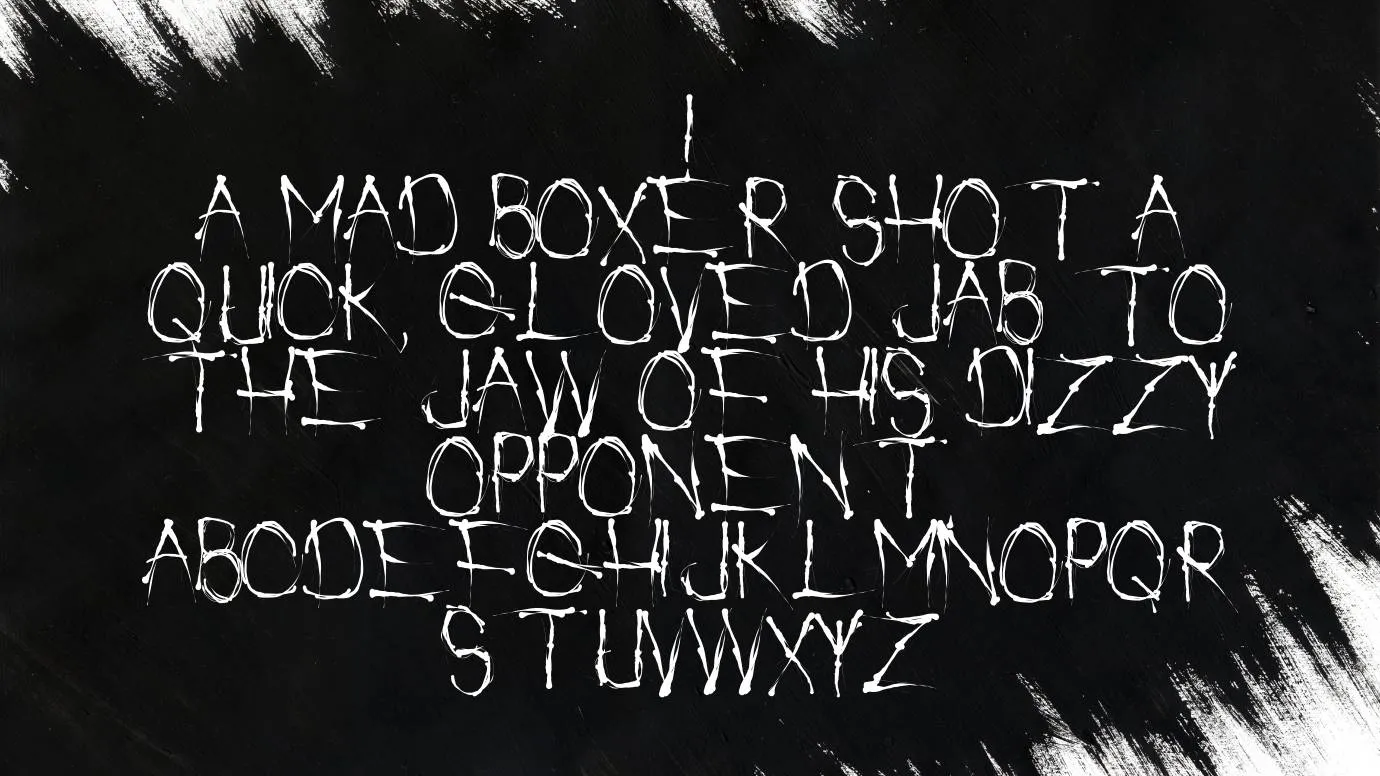 I
A MAD BOXER SHOT A
QUICK, GLOVED JAB TO
THE JAW OF HIS DIZZY
OPPONENT
ABCDEFGHIJKLMNOPQR
STUVWXYZ